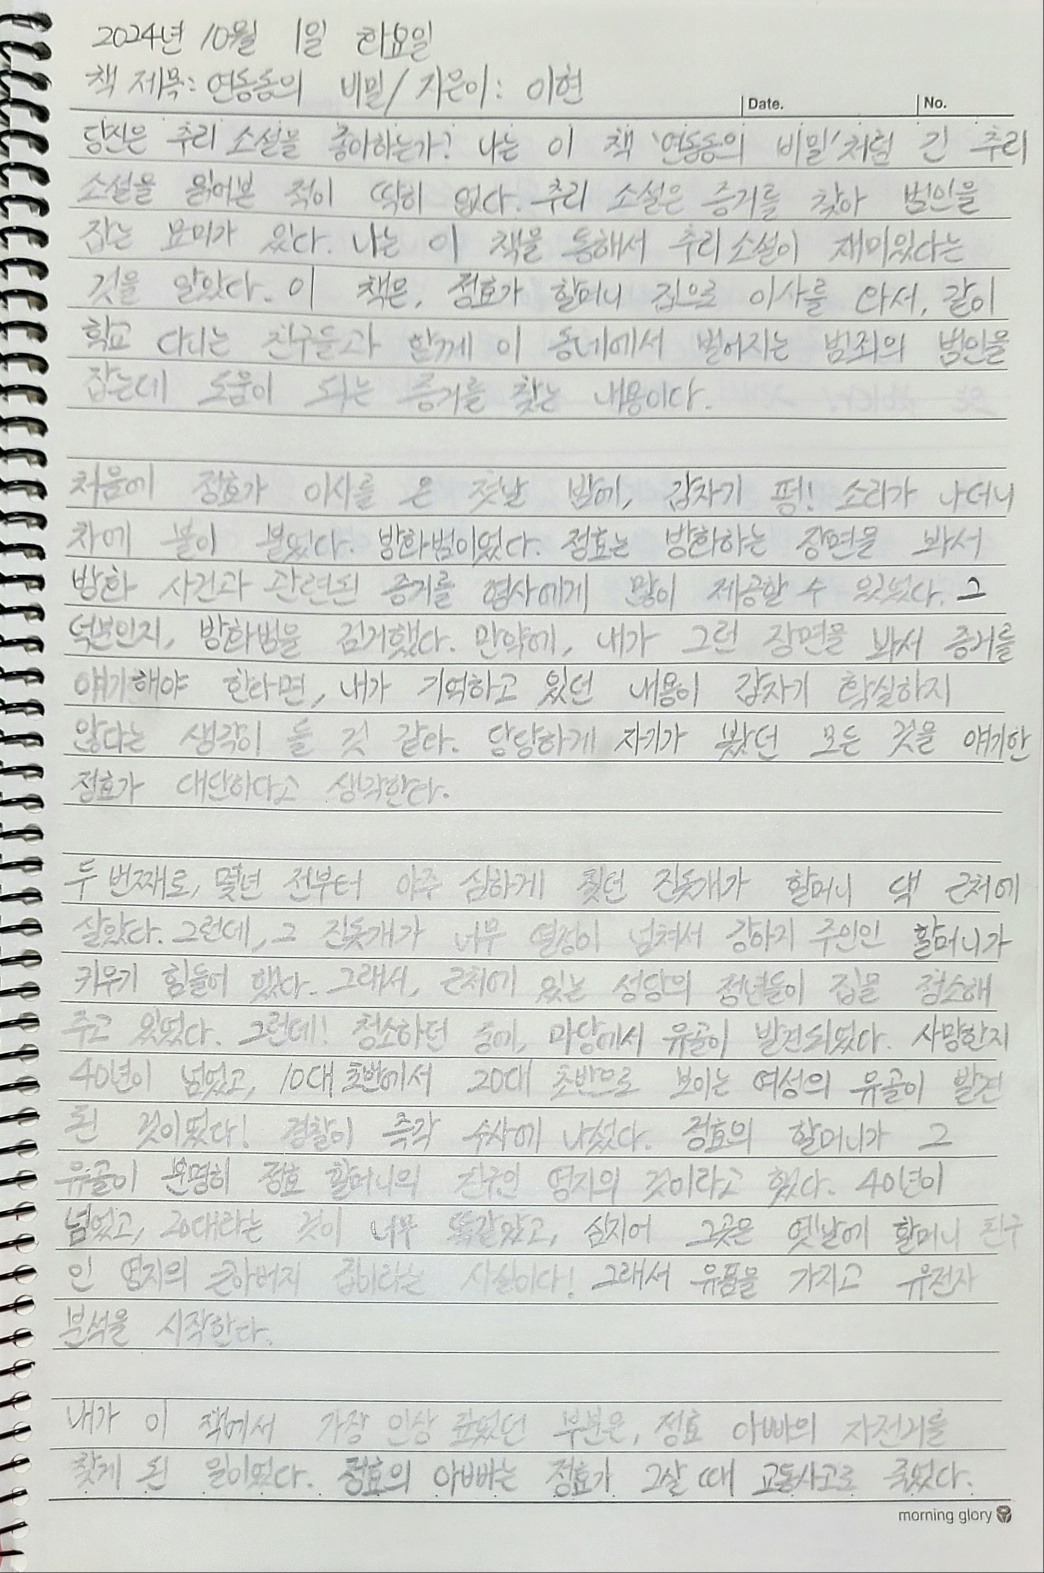 2024년 10월 1일 화요일
책 제목: 연동동의 비밀 / 지은이: 이현
Date. No.
당진은 추리 소설을 좋아하는가? 나는 이 책 '연동동의 비밀'처럼 긴 추리
소설을 읽어본 적이 딱히 없다. 추리 소설은 증거를 찾아 범인을
잡는 묘미가 있다. 나는 이 책을 통해서 추리소설이 재미있다는
것을 알았다. 이 책은, 정효가 할머니 집으로 이사를 와서, 같이
학교 다니는 친구들과 함께 이 동네에서 벌어지는 범죄의 범인을
잡는데 도움이 되는 증거를 찾는 내용이다.
처음에 정효가 이사를 온 첫날 밤에, 갑자기 펑! 소리가 나더니
차에 불이 붙었다. 방화범이었다. 정효는 방화하는 장면을 봐서
방화 사건과 관련된 증거를 형사에게 많이 제공할 수 있었다. 그
덕분인지, 방화범을 검거했다. 만약에, 내가 그런 장면을 봐서 증거를
얘기해야 한다면, 내가 기억하고 있던 내용이 갑자기 확실하지
않다는 생각이 들 것 같다. 당당하게 자기가 봤던 모든 것을 얘기한
정효가 대단하다고 생각한다.
두 번째로, 몇년 전부터 아주 심하게 짖던 진돗개가 할머니 댁 근처에
살았다. 그런데, 그 진돗개가 너무 열정이 넘쳐서 강아지 주인인 할머니가
키우기 힘들어 했다. 그래서, 근처에 있는 성당의 청년들이 집을 청소해
주고 있었다. 그런데! 청소하던 중에, 마당에서 유골이 발견되었다. 사망한지
40년이 넘었고, 10대 초반에서 20대 초반으로 보이는 여성의 유골이 발견
된 것이었다! 경찰이 즉각 수사에 나섰다. 정효의 할머니가 그
유골이 분명히 정효 할머니의 친구인 영자의 것이라고 했다. 40년이
넘었고, 20대라는 것이 너무 똑같았고, 심지어 그곳은 옛날에 할머니 친구
인 영자의 큰아버지 집이라는 사실이다! 그래서 유품을 가지고 유전자
분석을 시작한다.
내가 이 책에서 가장 인상 깊었던 부분은, 정효 아빠의 자전거를
찾게 된 일이었다. 정효의 아빠는 정효가 그살 때 교통사고로 죽었다.
morning glory